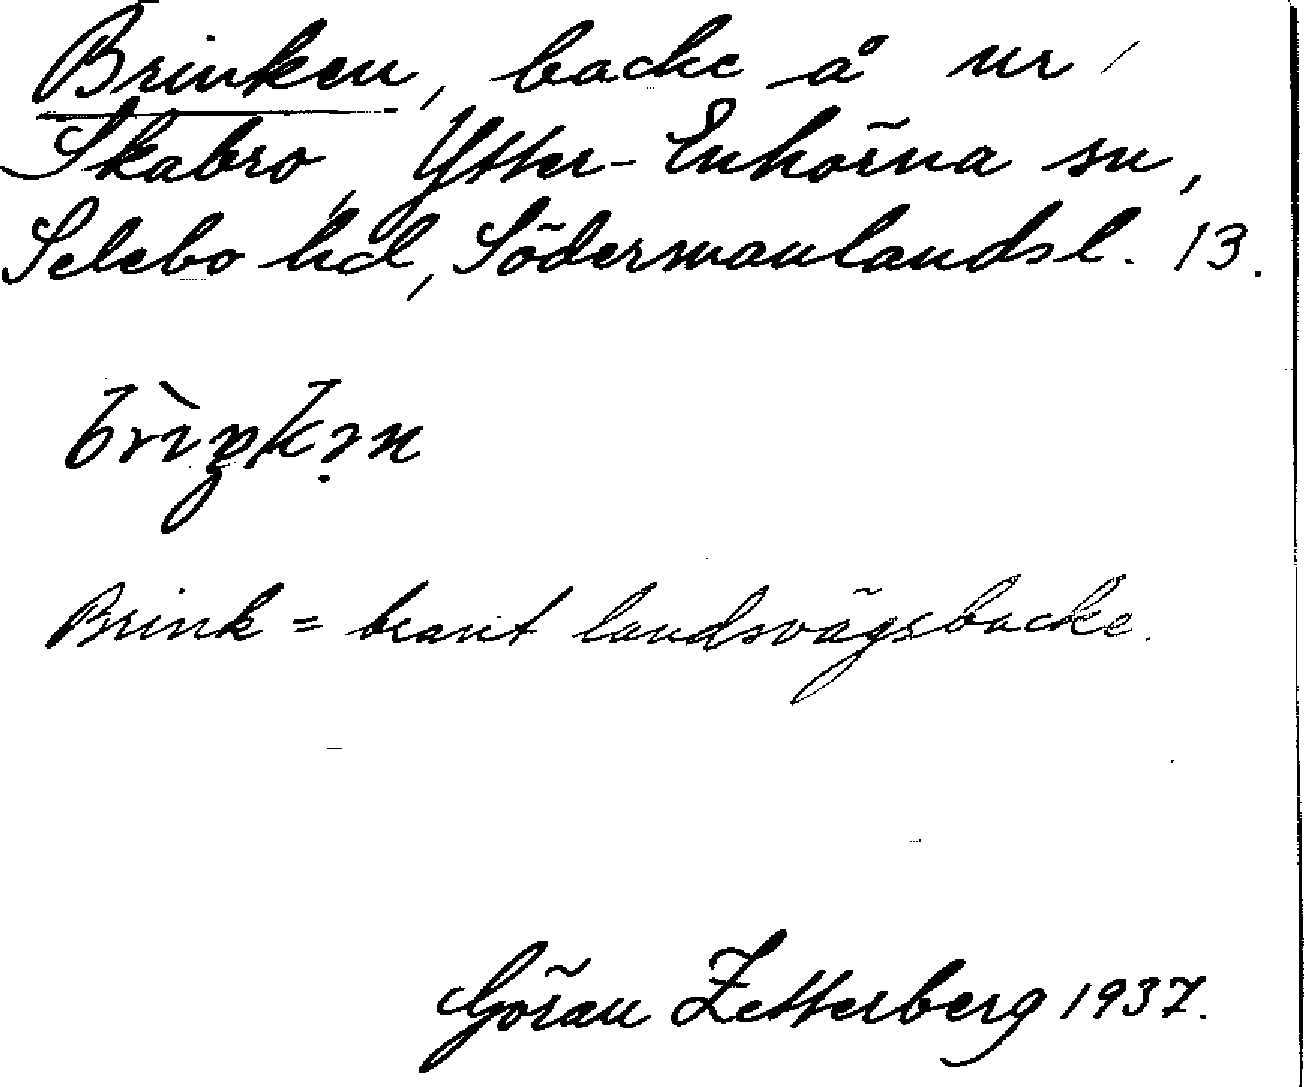 Brinken, backe å nr 1
Skabro, Ytter-Enhörna sn,
Selebo hd, Södermanlandsl. 13.
brìŋkɜ̣n
Brink = brant landsvägsbacke.
Göran Zetterberg 1937.